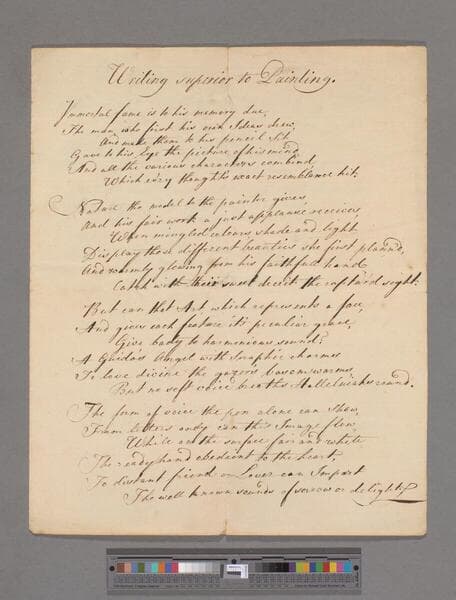 Writing superior to Painting.
Immortal fame is to his memory due,
The man, who first his own Ideas drew,
And made them to his pencil sit.
Gave to his Eye the picture of his mind,
And all the various characters combind,
Which ev'ry thought's exact resemblance hit.
Nature the model to the painter gives,
And his fair work a just applause receives,
When mingled colours shade and light
Display those different beauties she first plann'd,
And warmly glowing from his faithfull hand
Catch with their sweet deceit the raptur'd sight.
But can that Art which represents a face,
And gives each feature it's peculiar grace,
Give body to harmonious sound?
A Guido's Angel with Seraphic charms
To love divine the gazer's bosom warms,
But no soft voice breaths Hallelujahs round.
The form of voice the pen alone can show,
From letters only can this Image flow,
While on the surface fair and white
The ready hand obedient to the heart,
To distant friend or Lover can Impart
The well known sounds of sorrow or delight.